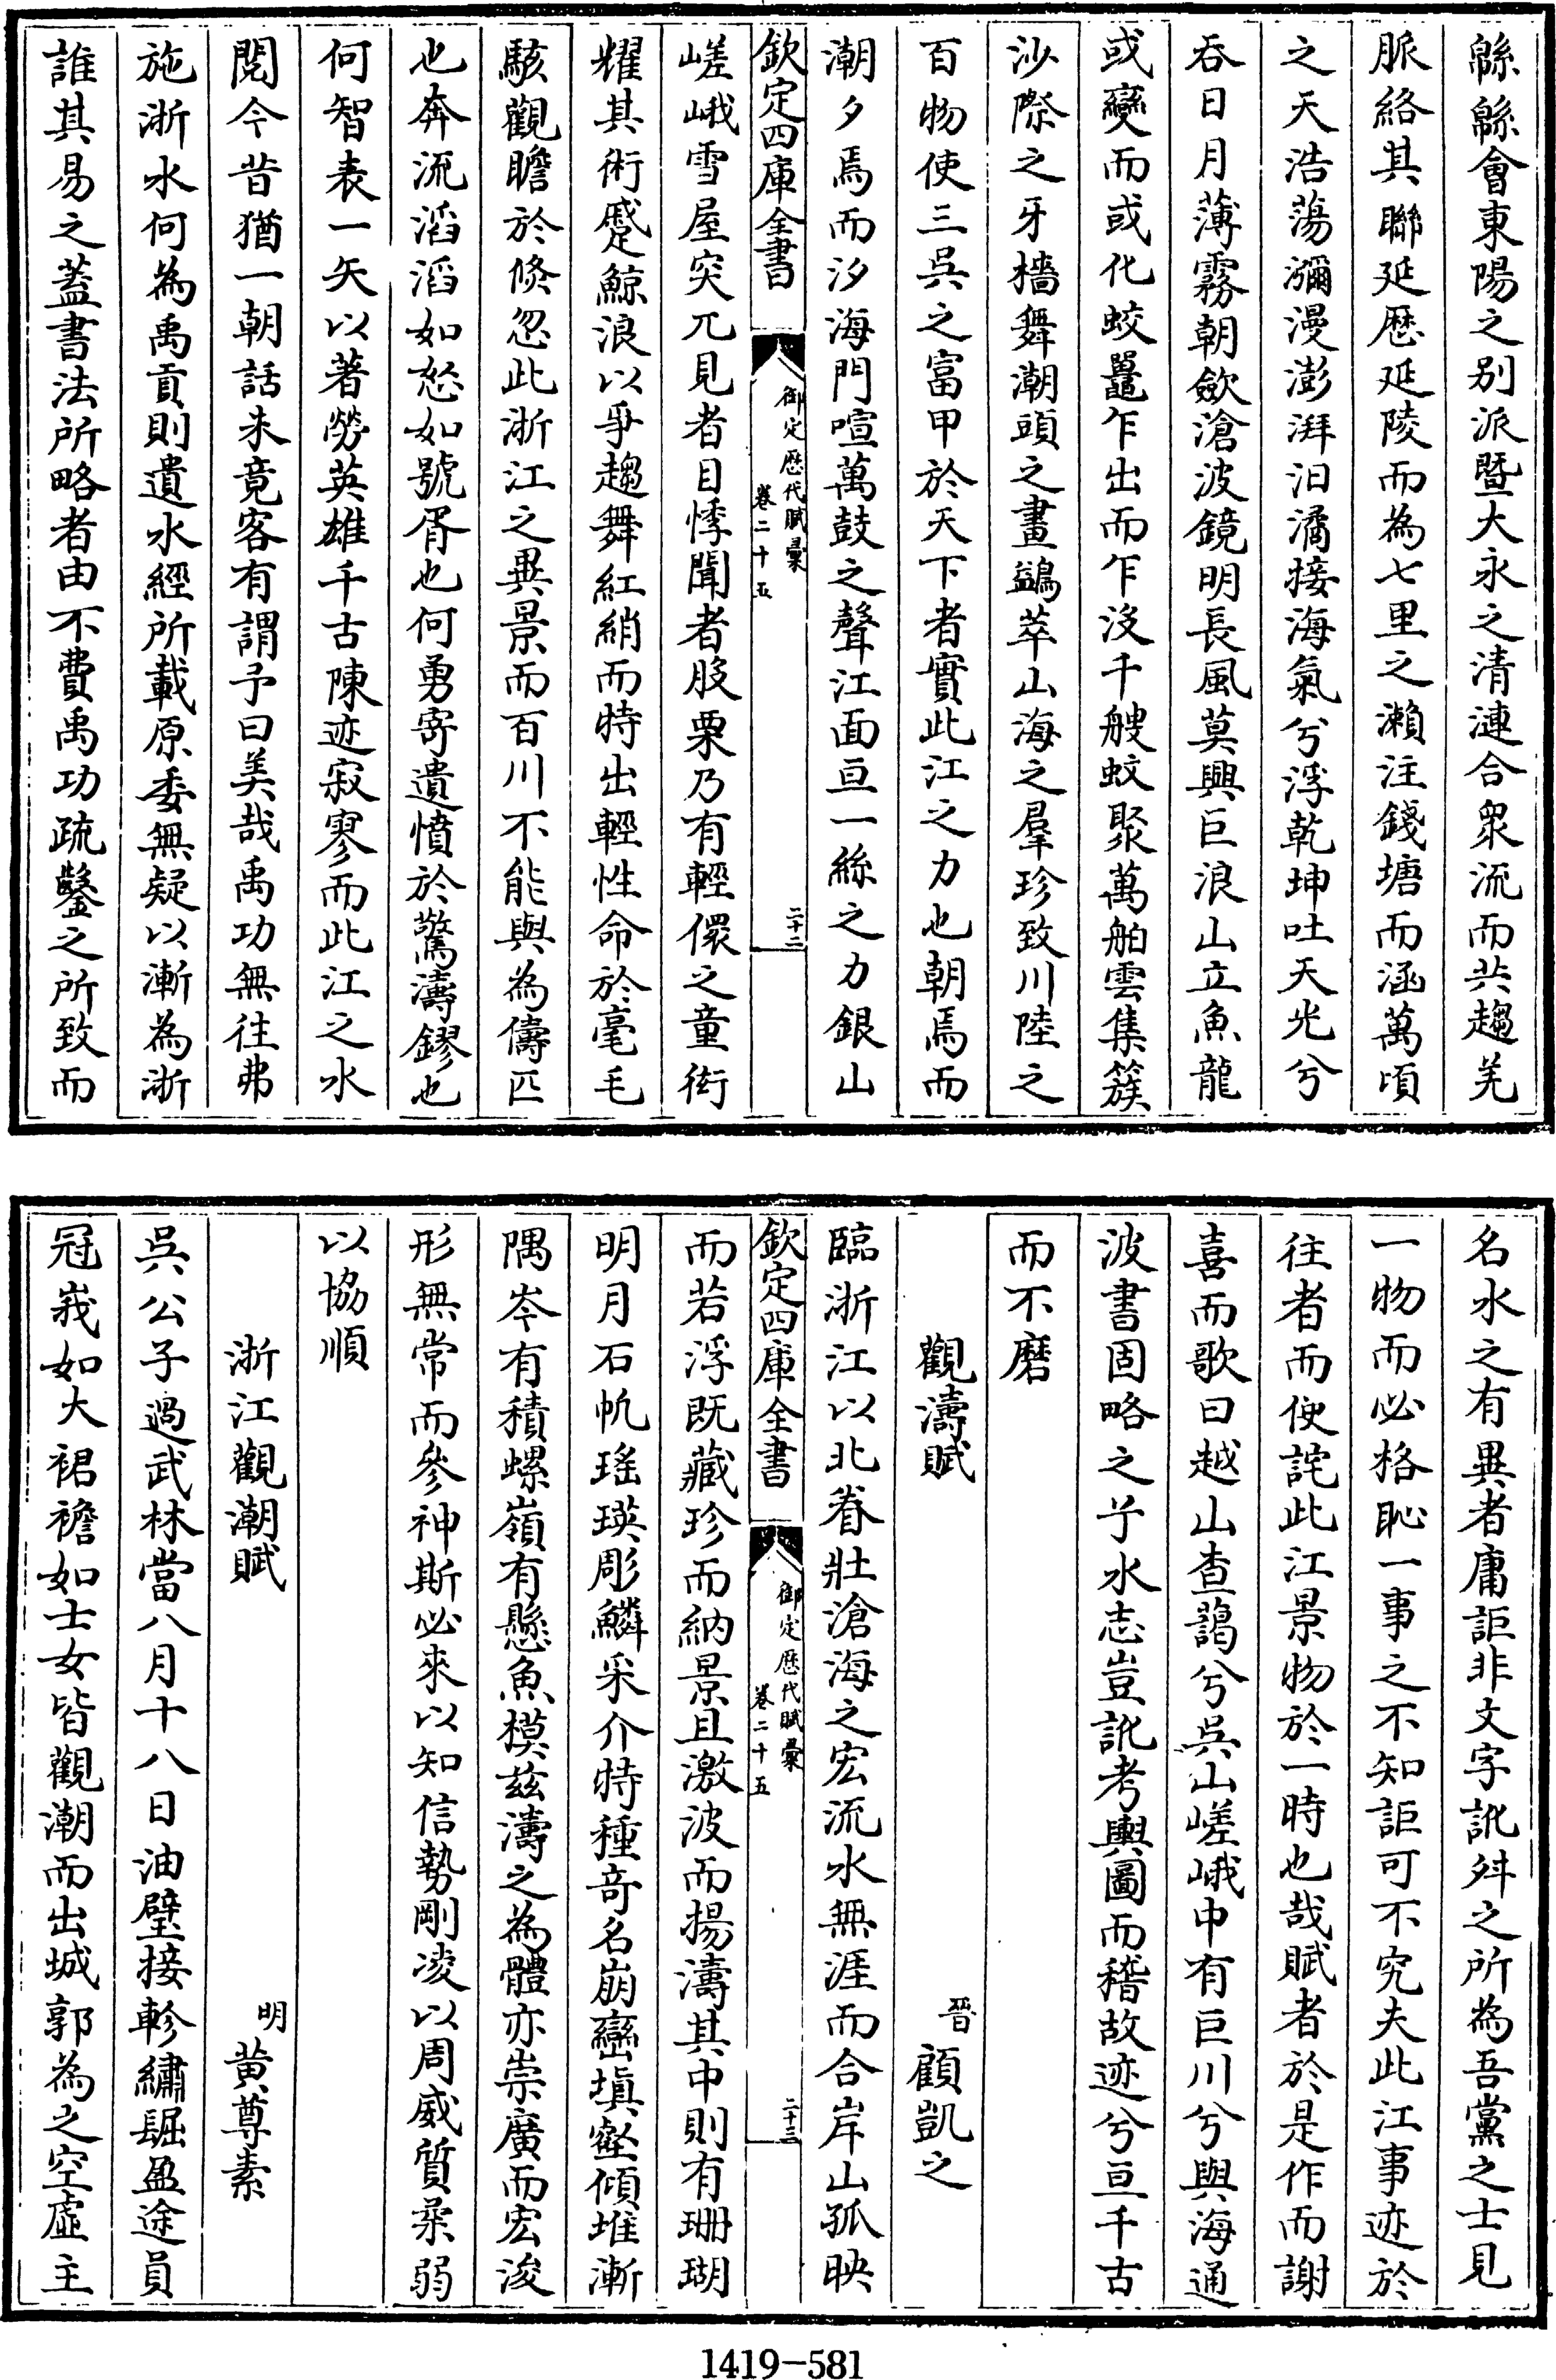 緜緜會東陽之別派暨大永之清漣合衆流而共趨羌
脈絡其聯延歷延陵而為七里之瀨注錢塘而涵萬頃
之天浩蕩瀰漫澎湃汨潏接海氣兮浮乾坤吐天光兮
吞日月薄霧朝斂滄波鏡明長風莫興巨浪山立魚龍
或變而或化蛟鼉乍出而乍沒千艘蚊聚萬舶雲集簇
沙際之牙檣舞潮頭之畫鷁萃山海之羣珍致川陸之
百物使三吳之富甲於天下者實此江之力也朝焉而
潮夕焉而汐海門喧萬鼓之聲江面亘一絲之力銀山
欽定四庫全書 御定歷代賦彙 卷二十五 二十二
嵯峨雪屋突兀見者目悸聞者股栗乃有輕儇之童衒
耀其術蹙鯨浪以爭趨舞紅綃而特出輕性命於毫毛
駭觀瞻於倏忽此浙江之異景而百川不能與為儔匹
也奔流滔滔如怒如號胥也何勇寄遺憤於驚濤鏐也
何智表一矢以著勞英雄千古陳迹寂寥而此江之水
閱今昔猶一朝話未竟客有謂予曰美哉禹功無往弗
施浙水何為禹貢則遺水經所載原委無疑以漸為浙
誰其易之蓋書法所略者由不費禹功疏鑿之所致而
名水之有異者庸詎非文字訛舛之所為吾黨之士見
一物而必格恥一事之不知詎可不究夫此江事迹於
往者而便詫此江景物於一時也哉賦者於是作而謝
喜而歌曰越山查藹兮吳山嵯峨中有巨川兮與海通
波書固略之兮水志豈訛考輿圖而稽故迹兮亘千古
而不磨
觀濤賦 晉 顧凱之
臨浙江以北眷壯滄海之宏流水無涯而合岸山孤映
欽定四庫全書 御定歷代賦彙 卷二十五 二十三
而若浮既藏珍而納景且激波而揚濤其中則有珊瑚
明月石帆瑤瑛彫鱗采介特種奇名崩巒填壑傾堆漸
隅岑有積螺嶺有懸魚模茲濤之為體亦崇廣而宏浚
形無常而參神斯必來以知信勢剛凌以周威質柔弱
以協順
浙江觀潮賦 明 黃尊素
吳公子過武林當八月十八日油壁接軫繡䮛盈途員
冠峩如大裙襜如士女皆觀潮而出城郭為之空虛主
1419-581